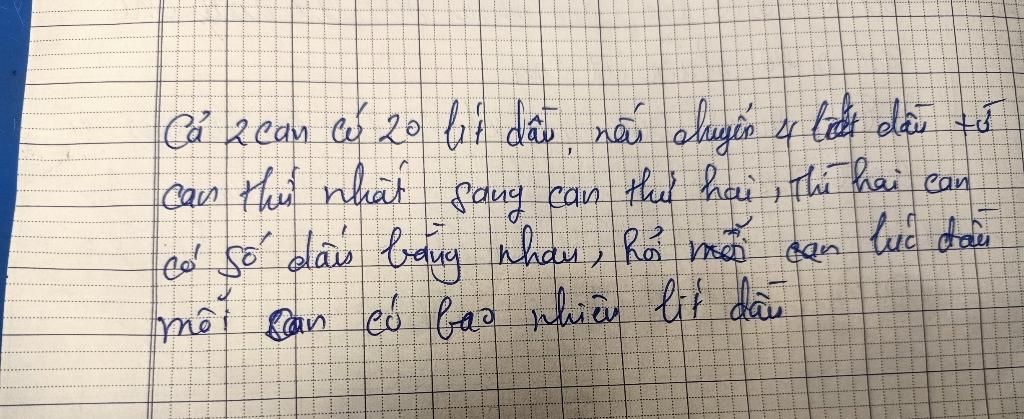 Cả 2 can có 20 lít dầu, nếu chuyển 4 lít dầu từ
can thứ nhất sang can thứ hai, thì hai can
có số dầu bằng nhau, hỏi mỗi can lúc đầu
mỗi can có bao nhiêu lít dầu